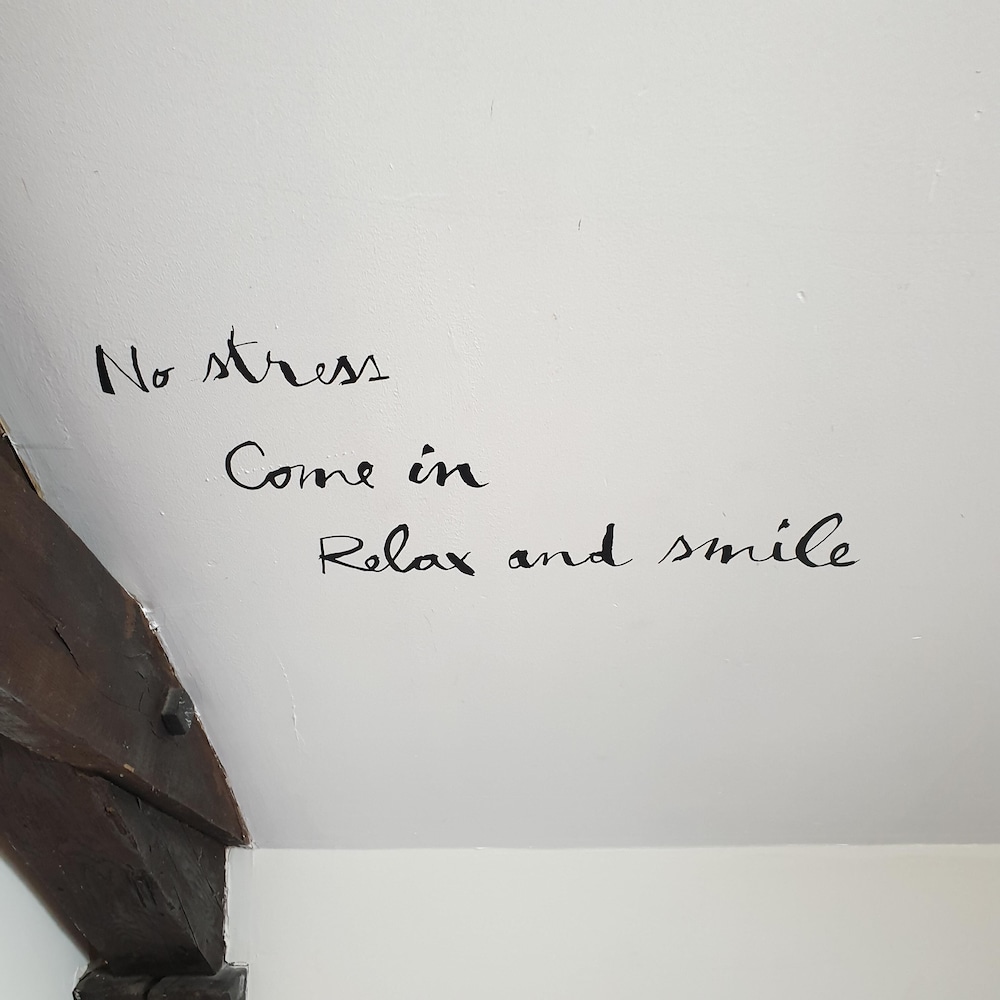 No stress
Come in
Relax and smile